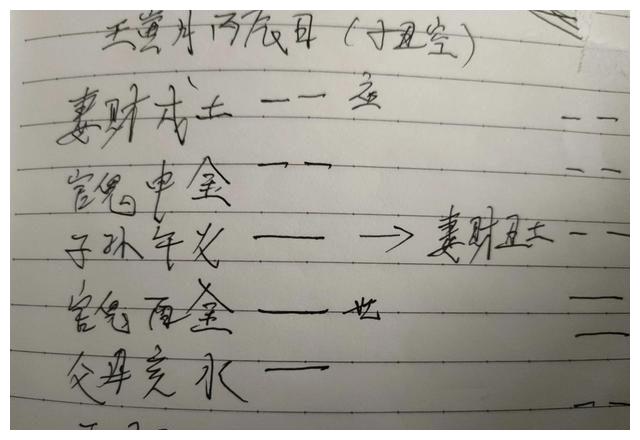 壬寅月丙辰日(子丑空)
妻财戌土 -- 应
官鬼申金 --
子孙午火 — → 妻财丑土 --
官鬼酉金 — 世
父母亥水 —